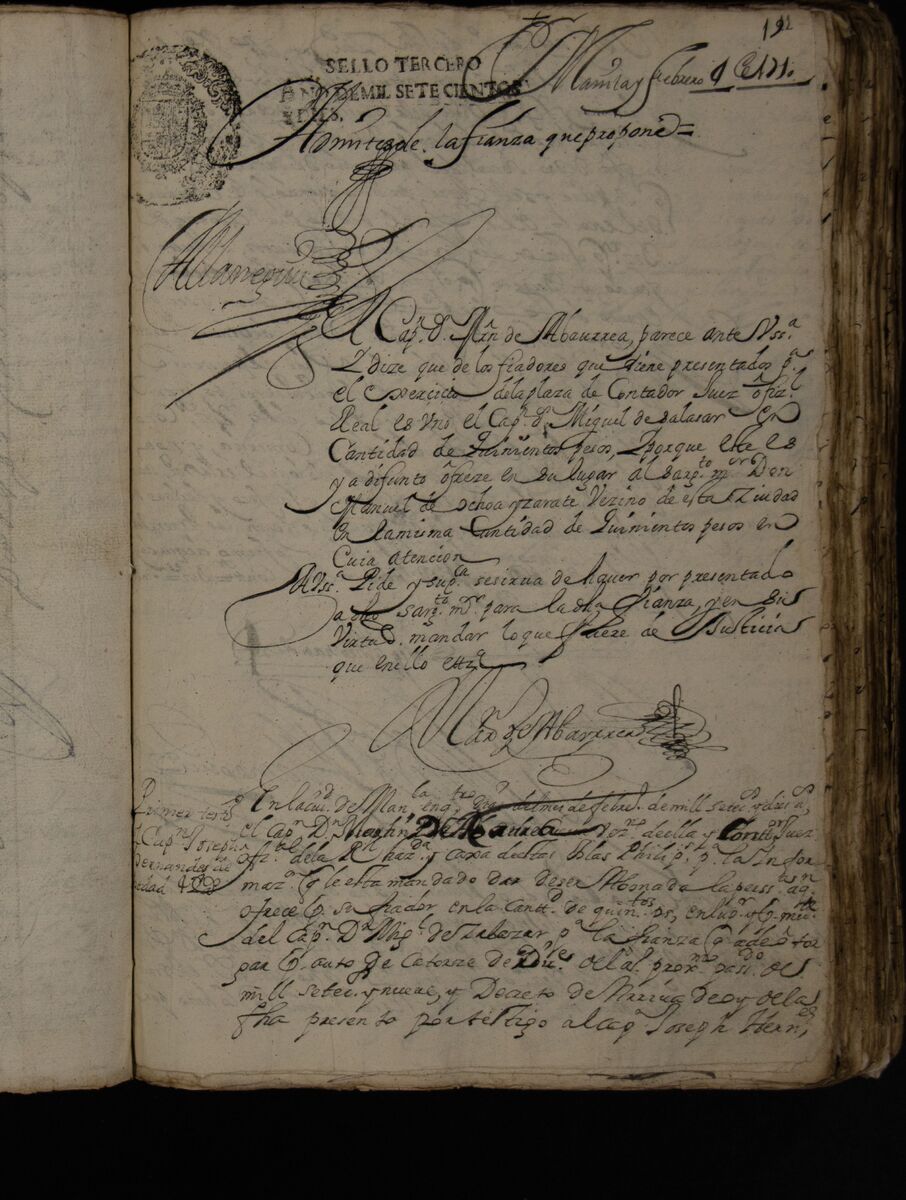 SELLO TERCERO
AÑO DE MIL SETECIENTOS
Y DIES.
Manila y febrero
Admitesele la fianza que propone =
El Capn. Dn. Mrn de Abaurrea, parece ante Vssa.
Y dize que de los fiadores que tiene presentados pa.
el exercicio de la plaza de Contador Juez ofizl.
Real es Vno el Capn. Dn. Miguel de Salasar en
Cantidad de Quinientos pesos, Y porque este es
ya difunto ofreze en su lugar al Sargto. mor Don
Manuel de Ochoa y zarate Vezino de esta Ziudad
en la misma Cantidad de Quinientos pesos en
Cuia atencion
A Vssa. Pide y supca. se sirua de hauer por presentado
a dho sargto. mr. para la dha fianza, y en su
Virtud. mandar lo que fuere de Justicia
que en ello etta.
Marn de Abaurrea
En la ciud. de Manla. en del mes de febro. de mill setecs. y diez as.
el Capn. Dn. Marthn De Abaurrea vezno. de ella y Conttor Juez
ofizl. de la Rl. hazda. y caxa destas Yslas Philips. pa. la Infor
mazn. q le esta mandado dar de ser Abonada la persna. q
ofrece p. su fiador en la cantd. de quintos. ps, en lugr. y p. mte.
del Capn. Dn. Migl. de Salazar pa. la fianza q a de otor
gar p. auto de Catorze de Dize. del al. proxmo. pasado. de
mill setecs. y nueue, y Decreto de Arriua de oy de la
fha presento por testigo al capn. Joseph Hernz
Primer testo.
Capn. Joseph
Hernandes de
edad